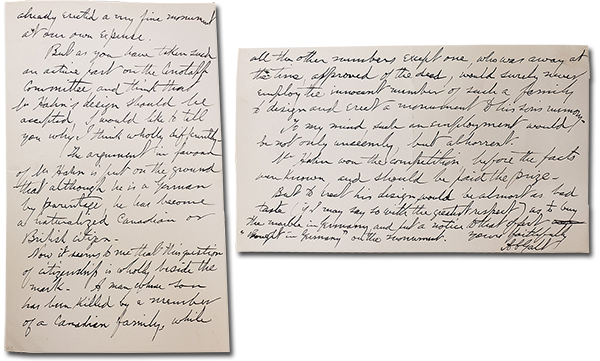 already erected a very fine monument
at our own expense.
But as you have taken such
an active part on the Cenotaph
Committee, and think that
Mr Hahn's design should be
accepted, I would like to tell
you why I think wholly differently.
The argument in favour
of Mr. Hahn is put on the ground
that although he is a German
by parentage, he has become
a naturalized Canadian or
British citizen.
Now it seems to me that this question
of citizenship is wholly beside the
mark. A man whose son
has been killed by a member
of a Canadian family, while
all the other members except one, who was away at
the time, approved of the deed, would surely never
employ the innocent member of such a family
to design and erect a monument to his son's memory.
To my mind such an employment would
be not only unseemly, but abhorrent.
Mr Hahn won the competition, before the facts
were known, and should be paid the prize.
But to erect his design would be almost as bad
taste (if I may say so with the greatest respect) as to buy
the marble in Germany and put a notice to that effect
"Bought in Germany" on the monument. Yours faithfully
A C Galt